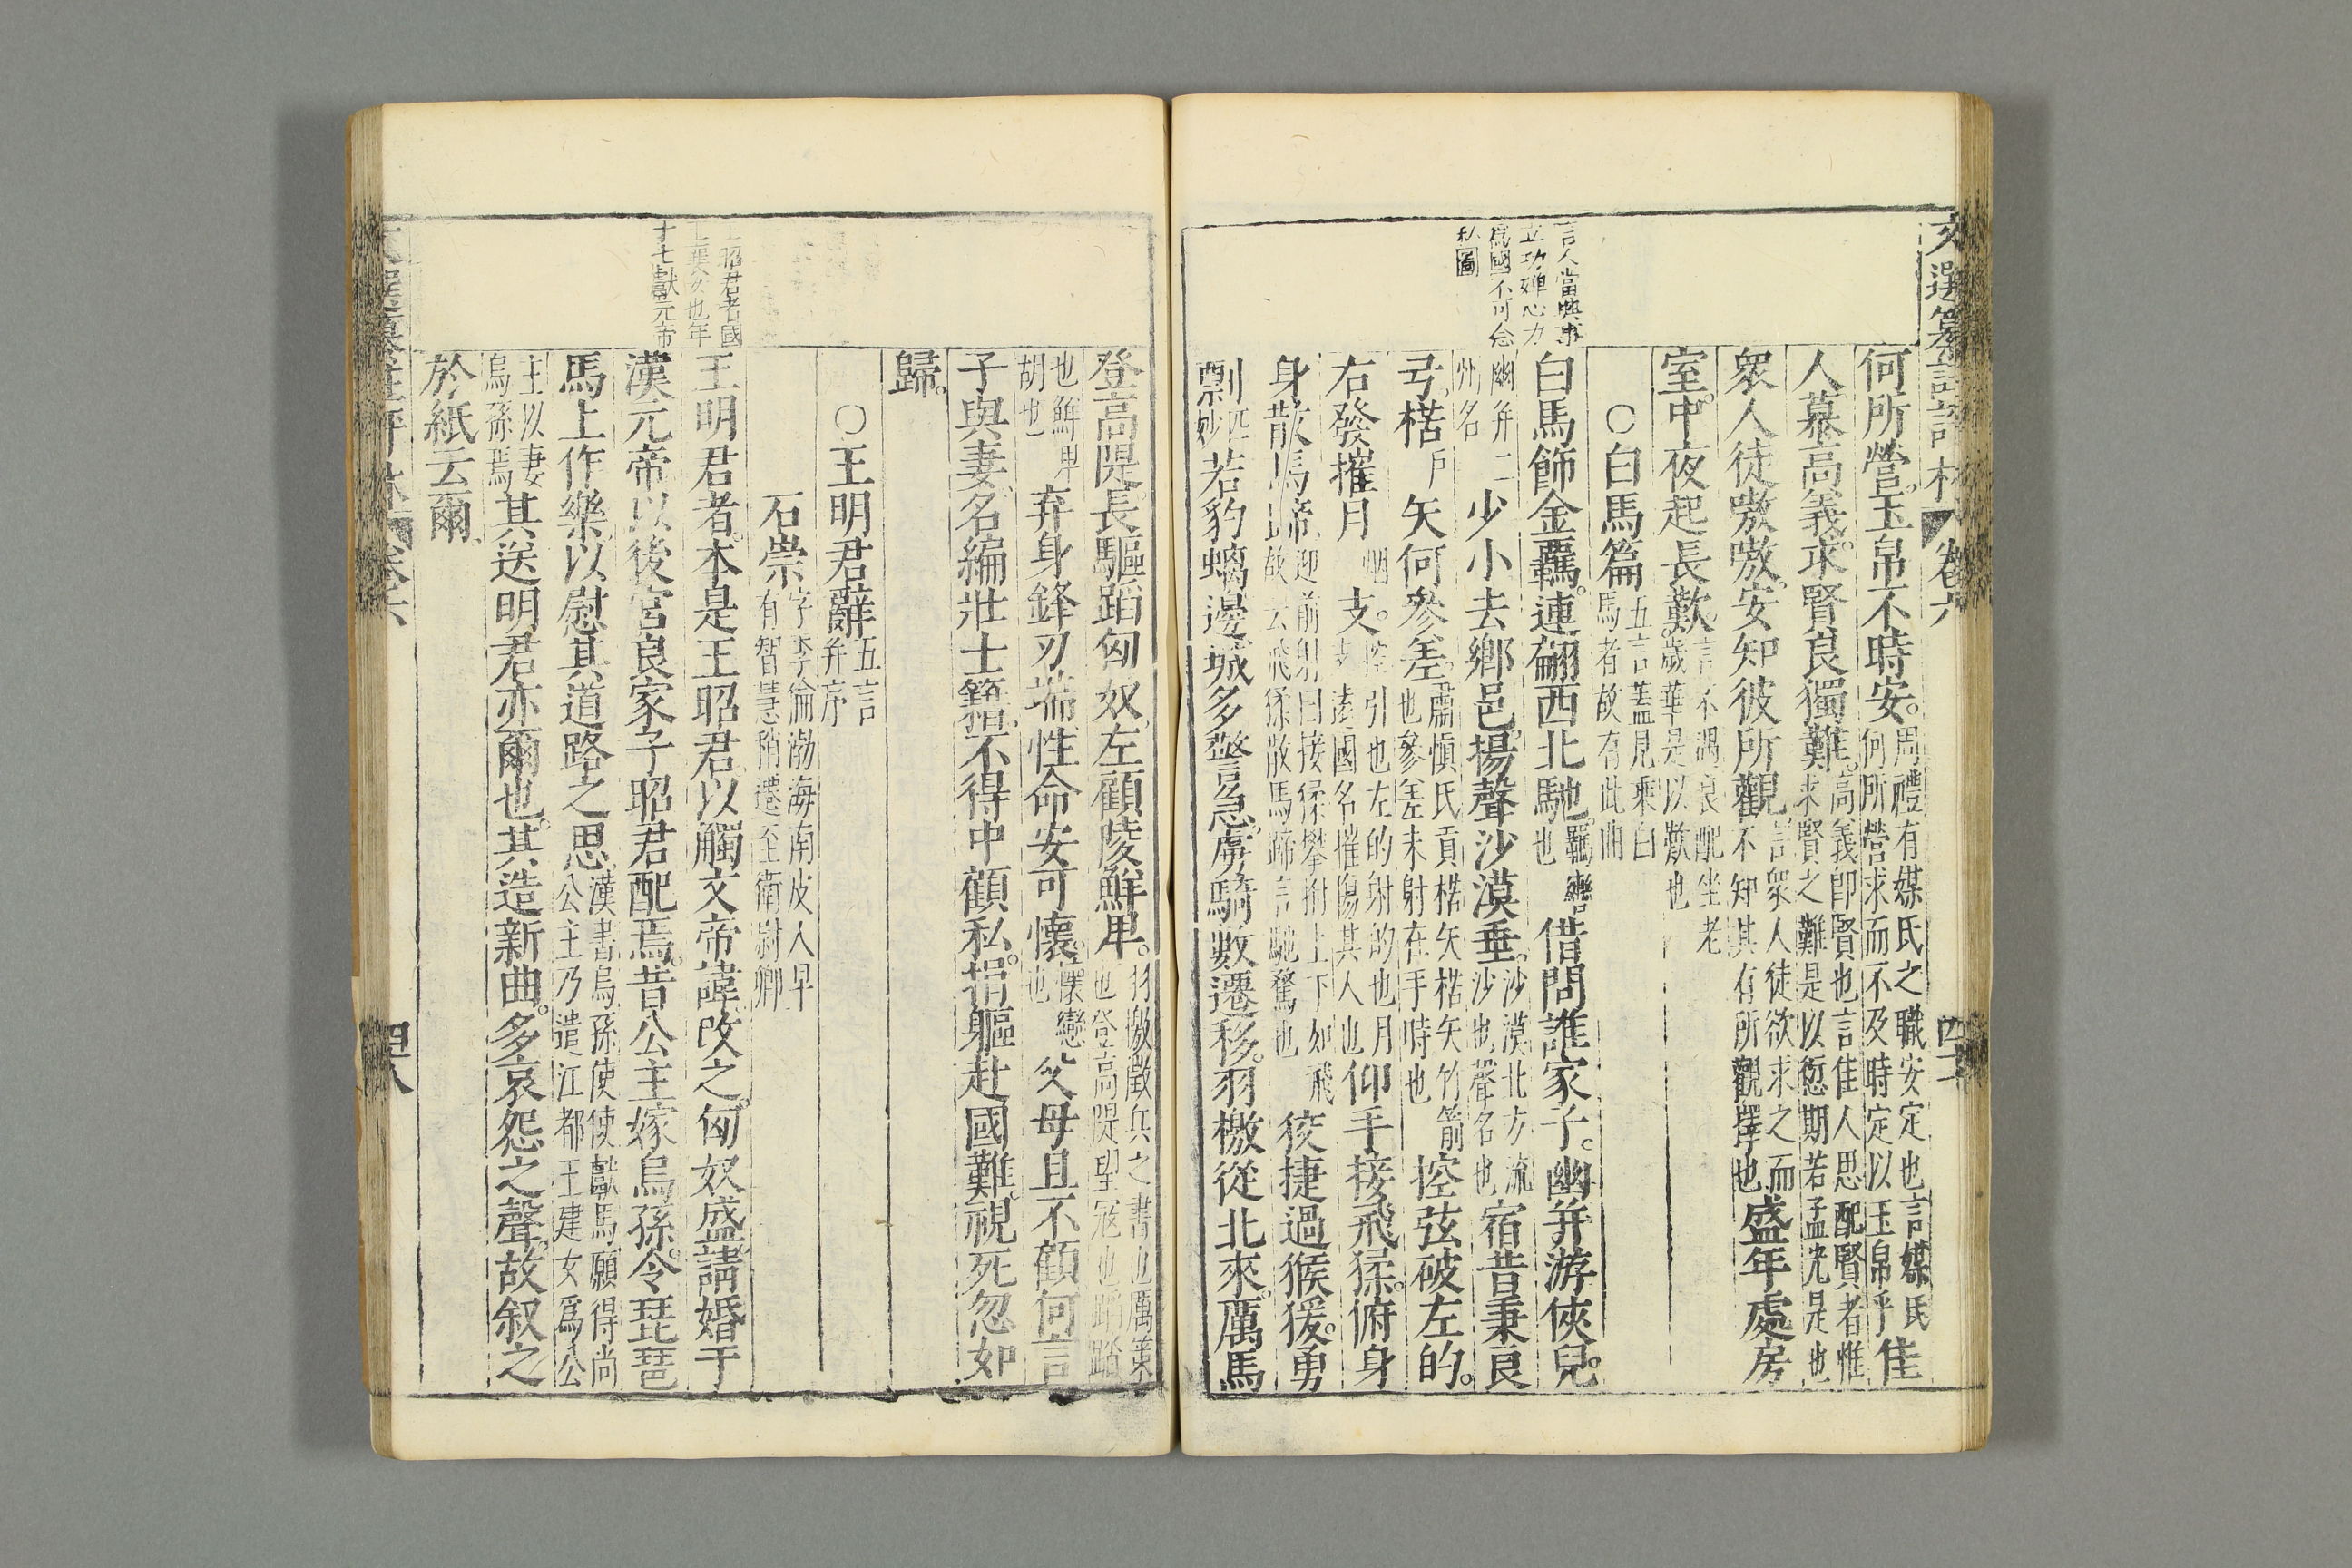 文選纂註評林 卷六
何所營玉帛不時安。周禮有媒氏之職安定也言媒氏何所營求而不及時定以玉帛乎佳
人慕高義求賢良獨難。高義卽賢也言佳人思配賢者惟求賢之難是以愆期若孟光是也
眾人徒嗷嗷安知彼所觀言眾人徒欲求之而不知其有所觀擇也盛年處房
室中夜起長歎言不遇良配坐老歲華是以歎也
○白馬篇五言蓋見乘白馬者故有此曲
言人當興事
立功殫心力
爲國不可念
私圖
白馬飾金羈。連翩西北馳。羈轡也借問誰家子。幽并游俠兒。
幽并二州名少小去鄉邑揚聲沙漠垂。沙漠北方流沙也聲名也宿昔秉良
弓楛戶矢何參差肅愼氏貢楛矢楛矢竹箭也參差未射在手時也控弦破左的。
右發摧月支。控引也左的射的也月支遠國名摧傷其人也仰手接飛猱俯身
身散馬蹄迎前射曰接猱攀捬上下如飛故云飛猱散馬蹄言馳騖也狡捷過猴猨。勇
剽匹妙若豹螭邊城多警急虜騎數遷移羽檄從北來。厲馬
登高隄長驅蹈匈奴左顧陵鮮卑。羽檄徵兵之書也厲策也登高隄望寇也蹈踏
也鮮卑胡也弃身鋒刃端性命安可懷。懷戀也父母且不顧何言
子與妻名編壯士籍不得中顧私。捐軀赴國難視死忽如
歸。
○王明君辭五言并序
石崇字季倫渤海南皮人早有智慧稍遷至衛尉卿
王昭君者國
王襄女也年
十七獻元帝
王明君者本是王昭君以觸文帝諱改之。匈奴盛請婚于
漢元帝以後宮良家子昭君配焉。昔公主嫁烏孫。令琵琶
馬上作樂以慰其道路之思漢書烏孫使使獻馬願得尚公主乃遣江都王建女爲公
主以妻烏孫焉其送明君亦爾也。其造新曲。多哀怨之聲故叙之
於紙云爾
文選纂註評林 卷六 四八